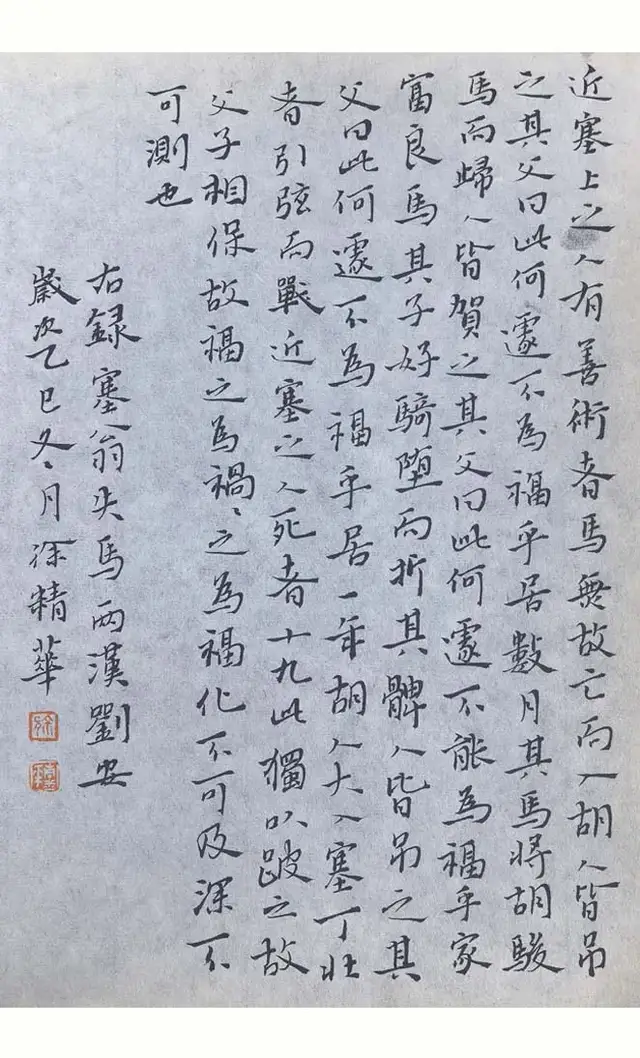 近塞上之人有善術者馬無故亡而入胡人皆吊
之其父曰此何遽不為福乎居數月其馬將胡駿
馬而歸人皆賀之其父曰此何遽不能為福乎家
富良馬其子好騎墮而折其髀人皆吊之其
父曰此何遽不為福乎居一年胡人大入塞丁壯
者引弦而戰近塞之人死者十九此獨以跛之故
父子相保故福之為禍、之為福化不可及深不
可測也
右録塞翁失馬兩漢劉安
歲次乙巳冬月徐精華